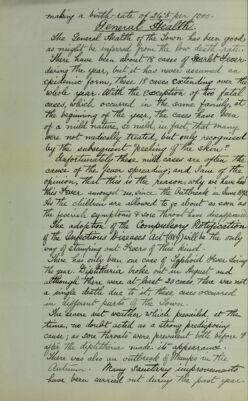 making a birth-rate of 34.5 per 1000.
General Health.
The General Health of the Town has been good
as might be inferred from the low death rate.
There have been about 18 cases of Scarlet Fever
during the year, but it has never assumed an
epidemic form, these 18 cases extending over the
whole year. With the exception of two fatal
cases, which occurred in the same family, at
the beginning of the year, the cases have been
of a mild nature, so mild, in fact, that many
were not medically treated, but only recognised
by the subsequent "peeling of the skin".
Unfortunately these mild cases are often the
cause of the fever spreading; and I am of the
opinion, that this is the reason why we have had
this Fever amongst us since the Outbreak in
As the children are allowed to go about as soon as
the feverish symptoms & sore throat have disappeared
The adoption of the Compulsory Notification
of the Infectious Diseases Act (1889) will be the only
way of stamping out Fever of this kind.
There has only been one case of Typhoid Fever during
the year. Diphtheria broke out in August and
although there were at least 20 cases, there was not
a single death due to it; these cases occurred
in different parts of the Town.
The severe wet weather which prevailed at the
time, no doubt acted as a strong predisposing
cause; as sore throats were prevalent both before &
after the diphtheria made its appearance.
There was also an outbreak of Mumps in the
Autumn. Many Sanitary improvements
have been carried out during the past year